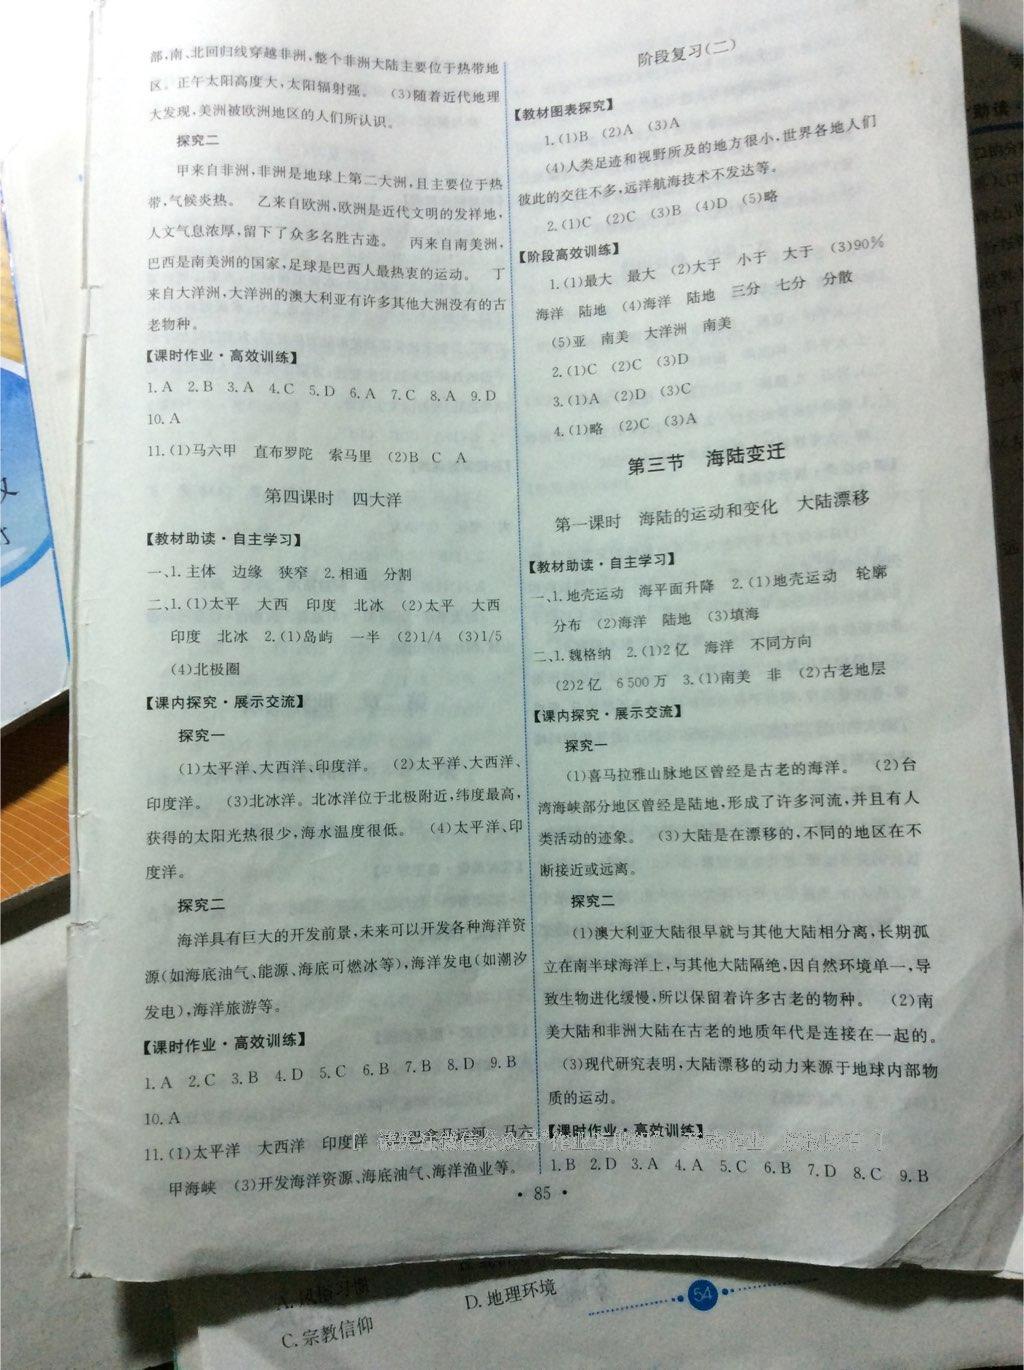 部,南、北回归线穿越非洲,整个非洲大陆主要位于热带地
区。正午太阳高度大,太阳辐射强。 (3)随着近代地理
大发现,美洲被欧洲地区的人们所认识。
探究二
甲来自非洲,非洲是地球上第二大洲,且主要位于热
带,气候炎热。 乙来自欧洲,欧洲是近代文明的发祥地,
人文气息浓厚,留下了众多名胜古迹。 丙来自南美洲,
巴西是南美洲的国家,足球是巴西人最热衷的运动。 丁
来自大洋洲,大洋洲的澳大利亚有许多其他大洲没有的古
老物种。
【课时作业·高效训练】
1.A 2.B 3.A 4.C 5.D 6.A 7.C 8.A 9.D
10.A
11.(1)马六甲 直布罗陀 索马里 (2)B C A
第四课时 四大洋
【教材助读·自主学习】
一、1.主体 边缘 狭窄 2.相通 分割
二、1.(1)太平 大西 印度 北冰 (2)太平 大西
印度 北冰 2.(1)岛屿 一半 (2)1/4 (3)1/5
(4)北极圈
【课内探究·展示交流】
探究一
(1)太平洋、大西洋、印度洋。 (2)太平洋、大西洋、
印度洋。 (3)北冰洋。北冰洋位于北极附近,纬度最高,
获得的太阳光热很少,海水温度很低。 (4)太平洋、印
度洋。
探究二
海洋具有巨大的开发前景,未来可以开发各种海洋资
源(如海底油气、能源、海底可燃冰等),海洋发电(如潮汐
发电),海洋旅游等。
【课时作业·高效训练】
1.A 2.C 3.B 4.D 5.C 6.B 7.B 8.D 9.B
10.A
11.(1)太平洋 大西洋 印度洋 马六
甲海峡 (3)开发海洋资源、海底油气、海洋渔业等。
阶段复习(二)
【教材图表探究】
1.(1)B (2)A (3)A
(4)人类足迹和视野所及的地方很小,世界各地人们
彼此的交往不多,远洋航海技术不发达等。
2.(1)C (2)C (3)B (4)D (5)略
【阶段高效训练】
1.(1)最大 最大 (2)大于 小于 大于 (3)90%
海洋 陆地 (4)海洋 陆地 三分 七分 分散
(5)亚 南美 大洋洲 南美
2.(1)C (2)C (3)D
3.(1)A (2)D (3)C
4.(1)略 (2)C (3)A
第三节 海陆变迁
第一课时 海陆的运动和变化 大陆漂移
【教材助读·自主学习】
一、1.地壳运动 海平面升降 2.(1)地壳运动 轮廓
分布 (2)海洋 陆地 (3)填海
二、1.魏格纳 2.(1)2亿 海洋 不同方向
(2)2亿 6 500万 3.(1)南美 非 (2)古老地层
【课内探究·展示交流】
探究一
(1)喜马拉雅山脉地区曾经是古老的海洋。 (2)台
湾海峡部分地区曾经是陆地,形成了许多河流,并且有人
类活动的迹象。 (3)大陆是在漂移的,不同的地区在不
断接近或远离。
探究二
(1)澳大利亚大陆很早就与其他大陆相分离,长期孤
立在南半球海洋上,与其他大陆隔绝,因自然环境单一,导
致生物进化缓慢,所以保留着许多古老的物种。 (2)南
美大陆和非洲大陆在古老的地质年代是连接在一起的。
(3)现代研究表明,大陆漂移的动力来源于地球内部物
质的运动。
【课时作业·高效训练】
1.B 2.D 3.A 4.A 5.C 6.B 7.D 8.C 9.B
• 85 •
A.风俗习惯
D.地理环境
C.宗教信仰
54